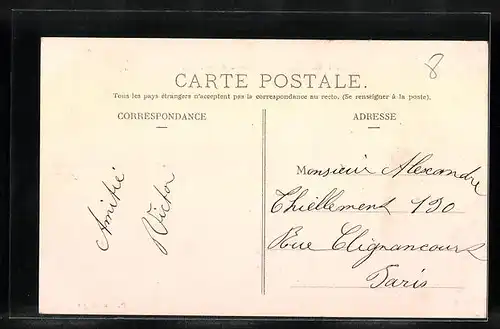 8
CARTE POSTALE.
Tous les pays étrangers n'acceptent pas la correspondance au recto. (Se renseigner à la poste).
CORRESPONDANCE
ADRESSE
Amitié
Victor
Monsieur Alexandre
Thiellement 190
Rue Clignancourt
Paris